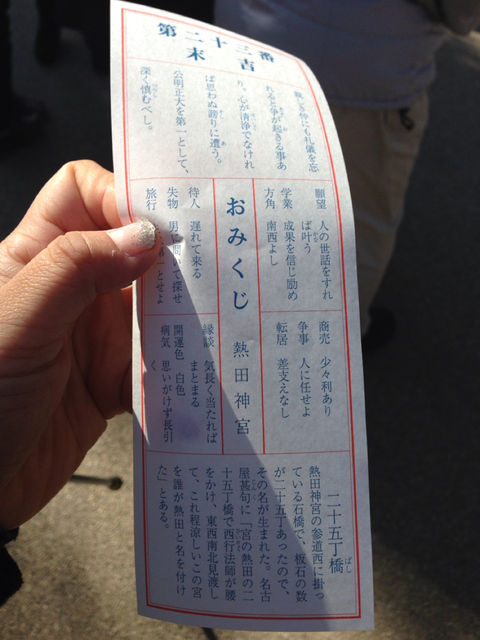 第二十三番
末吉
親しき仲にも礼儀を忘
れると争が起きる事あ
り。心が清浄でなけれ
ば思わぬ謗りに遭う。
公明正大を第一として、
深く慎むべし。
願望 人の世話をすれ
ば叶う
学業 成果を信じ励め
方角 南西よし
おみくじ 熱田神宮
待人 遅れて来る
失物 男に聞いて探せ
旅行 第一とせよ
商売 少々利あり
争事 人に任せよ
転居 差支えなし
縁談 気長く当たれば
まとまる
開運色 白色
病気 思いがけず長引
く
二十五丁橋
熱田神宮の参道西に掛っ
ている石橋で、板石の数
が二十五丁あったので、
その名が生まれた。名古
屋甚句に「宮の熱田の二
十五丁橋で西行法師が腰
をかけ、東西南北見渡し
て、これ程涼しいこの宮
を誰が熱田と名を付け
た」とある。